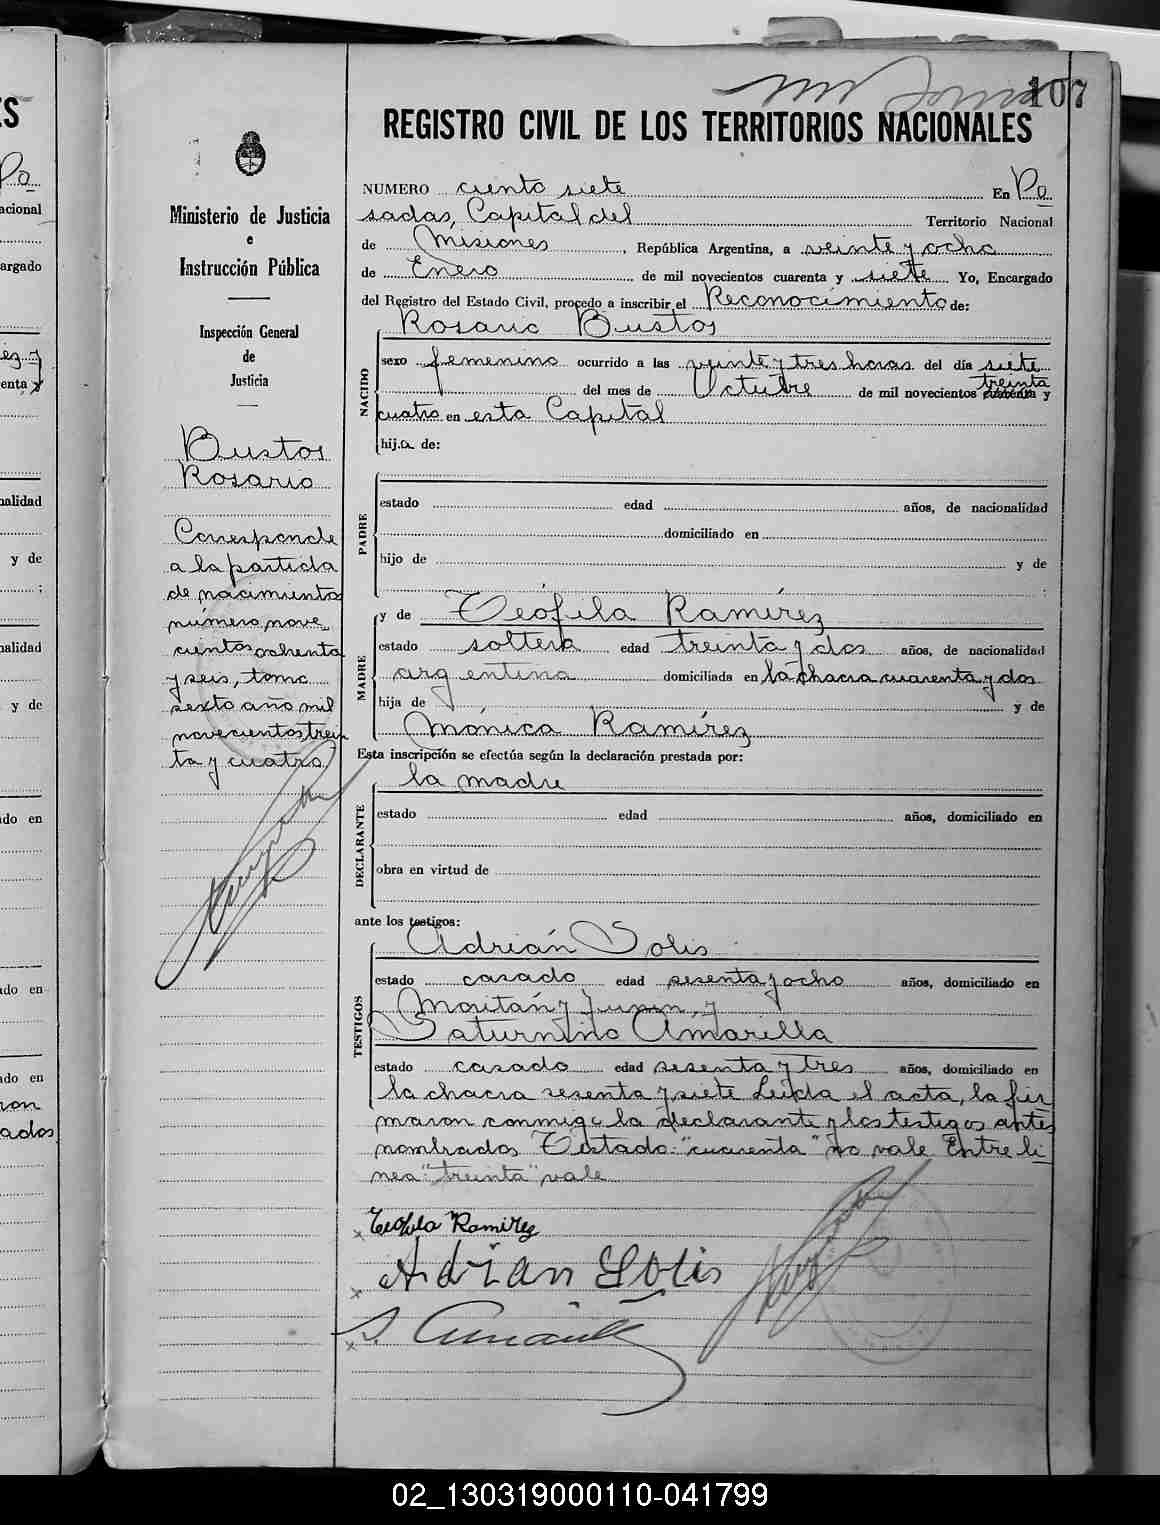 107
REGISTRO CIVIL DE LOS TERRITORIOS NACIONALES
Ministerio de Justicia
e
Instrucción Pública
Inspección General
de
Justicia
Bustos
Rosario
Corresponde
a la partida
de nacimiento
número nove
cientos ochenta
y seis, tomo
sexto año mil
novecientos trein
ta y cuatro
NUMERO ciento siete En Po
sadas, Capital del Territorio Nacional
de Misiones, República Argentina, a veinte y ocho
de Enero de mil novecientos cuarenta y siete Yo, Encargado
del Registro del Estado Civil, procedo a inscribir el Reconocimiento de:
Rosario Bustos
NACIDO
sexo femenino ocurrido a las veinte y tres horas del día siete
treinta
del mes de Octubre de mil novecientos cuarenta y
cuatro en esta Capital
hija de:
PADRE
estado edad años, de nacionalidad
domiciliado en
hijo de y de
;
MADRE
y de Teófila Ramírez
estado soltera edad treinta y dos años, de nacionalidad
argentina domiciliada en la chacra cuarenta y dos
hija de y de
Mónica Ramírez
Esta inscripción se efectúa según la declaración prestada por:
la madre
DECLARANTE
estado edad años, domiciliado en
obra en virtud de
ante los testigos:
TESTIGOS
Adrián Solis
estado casado edad sesenta y ocho años, domiciliado en
Moritán y Junin, y
Saturnino Amarilla
estado casado edad sesenta y tres años, domiciliado en
la chacra sesenta y siete Leida el acta, la fir
maron conmigo la declarante y los testigos antes
nombrados Testado: "cuarenta" no vale Entre li
nea: "treinta" vale
x Teofila Ramirez
x Adrian Solis
x S. Amarilla
ES
Po
acional
argado
ez y
enta y
nalidad
y de
;
nalidad
y de
do en
do en
do en
ron
ados
02_130319000110-041799